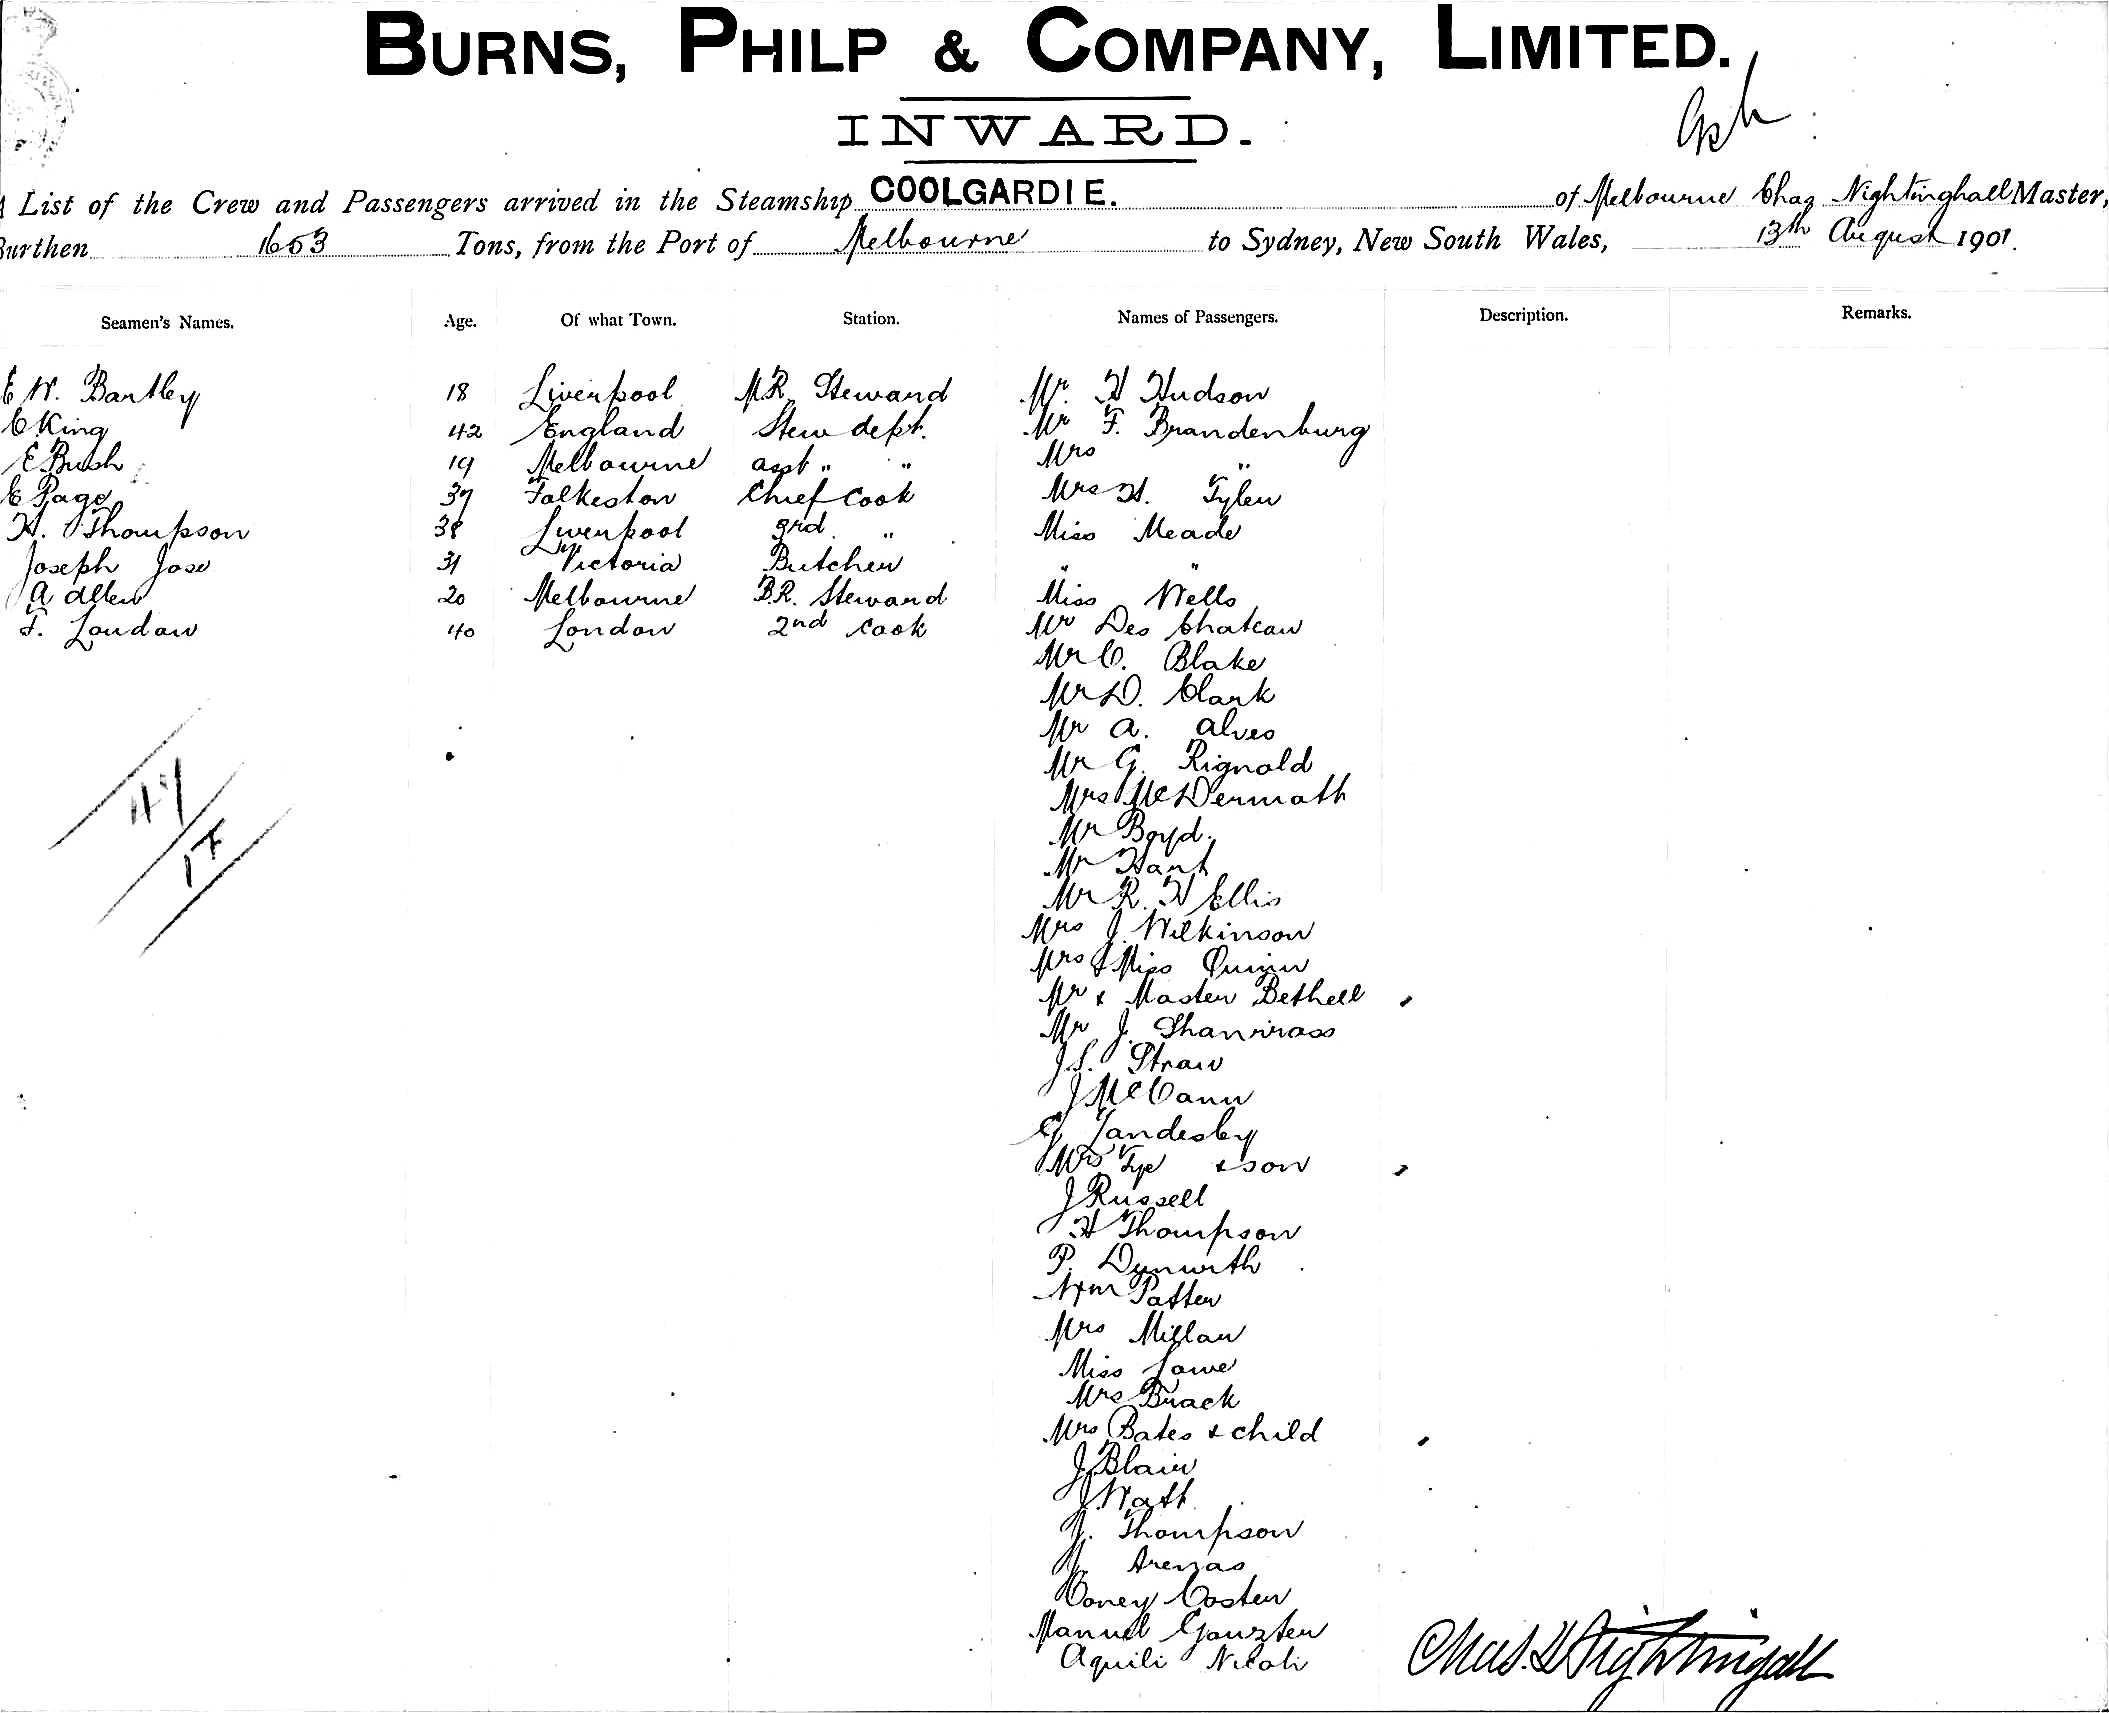 BURNS, PHILP & COMPANY, LIMITED.
INWARD.
List of the Crew and Passengers arrived in the Steamship COOLGARDIE. of Melbourne Chas Nightinghall Master,
Burthen 1653 Tons, from the Port of Melbourne to Sydney, New South Wales, 13th August 1901.
Seamen's Names. Age. Of what Town. Station. Names of Passengers. Description. Remarks.
E W. Bartley 18 Liverpool M.R. Steward Mr. H Hudson
C King 42 England Stew dept. Mr F. Brandenburg
E Bush 19 Melbourne asst " " Mrs "
E Page 37 Folkeston Chief Cook Mrs H. Tyler
H. Thompson 38 Liverpool 3rd " Miss Meade
Joseph Jose 31 Victoria Butcher " "
A Allen 20 Melbourne B.R. Steward Miss Wells
F. Loudon 40 London 2nd Cook Mr Des Chateau
Mr C. Blake
Mr D. Clark
Mr A. Alves
Mr G. Rignold
Mrs McDermott
Mr Boyd.
Mr Hart
Mr R. H Ellis
Mrs J. Wilkinson
Mrs & Miss Quinn
Mr & Master Bethell
Mr J.
J.S. Straw
J McCann
G Tandesby
Mrs Tye & son
J Russell
H Thompson
P.
Wm Patten
Mrs Millan
Miss Lowe
Mrs Brack
Mrs Bates & child
J Blair
J Watt
J. Thompson
J. Arenas
Coney Coster
Manuel
Aquili Nicoli
Chas. Nightingall
47
17